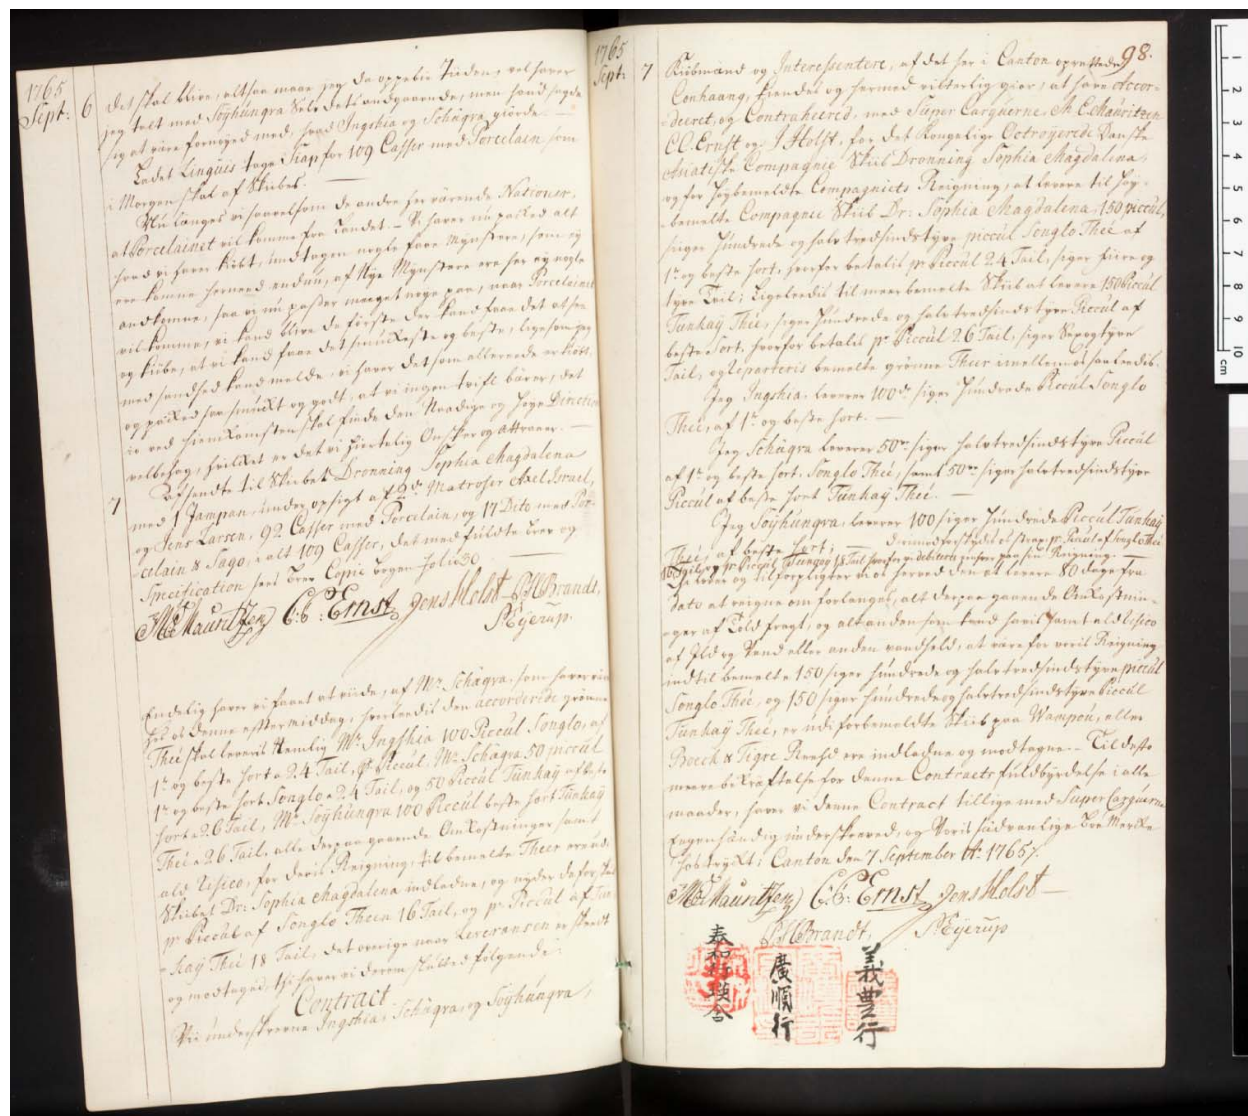 1765
Sept:
6
det skal blive, altsaa maae jeg da oppebie Tiiden, vel haver
jeg talt med Soyhunqra Selv dets andgaaende, men hand sagde
sig at være fornøyed med, hvad Ingshia og Schäqra giörde. —
Lodet Linguis tage Siap for 109 Casser med Porcelain som
i Morgen skal af Skibes. —
Nu længes vi saavelsom de andre her værende Nationer,
at Porcelainet vil komme fra Landet. – Vi haver nu packed alt
hvad vi haver kiöbt, undtagen nogle faae Mynstere, som ey
ere komne herneed endnu, af Nye Mynstere ere her ey nogle
andkomne, saa vi nu passer meeget nøye paa, naar Porcelainet
vil komme, vi kand blive de første der kand faae det at see
og kiöbe, at vi kand faae det smuckeste og beste, ligesom jeg
med sandhed kand melde, vi haver det som allereede er kiöbt,
og packed saa smuckt og godt, at vi ingen tvifl bærer, det
io ved hiemkomsten skal finde den Naadige og Høye Direction
velbehag, hvilket er det vi hiertelig Onsker og attraaer. —
7
Afsendte til Skibet Dronning Sophia Magdalena
med 1 Jampan, under opsigt af 2de Matroser Axel Israel,
og Jens Larsen, 92 Casser med Porcelain, og 17 Dito med Por-
celain & Sago, er alt 109 Casser, det medfuldte Brev og
Specification sees Brev Copie Bogen folio 30 —
M: C: Mauritzen C: C: Ernst Jens Holst P: H: Brandt,
P: Eyerup.
Endelig haver vi faaet at viide, af Mr. Schäqra, som haver været
hos os denne efttermiddag, hvorleedis den accorderede grønne
Theé skal leveris Nemlig Mr. Ingshia 100 Piccul Songlo, af
1te og beste sort a 24 Tail, pr. Piccul. Mr. Schäqra 50 piccul
1te og beste sort Songlo a 24 Tail, og 50 Piccul Tunkay af beste
sort a 26 Tail, Mr. Soyhunqra 100 Piccul beste sort Tunkay
Theé a 26 Tail, alle derpaa gaaende Omkostninger samt
ald Risico, for deris Reigning, til bemelte Theer ere udi
Skibet Dr: Sophia Magdalena indladne, og nyder de forstud
pr. Piccul af Songlo Theen 16 Tail, og pr. Piccul af Tun-
kay Theé 18 Tail, det øvrige naar Leverancen er skeedt
og modtaged, thi haver vi derom slutted følgende:
Contract
Vii underskrevne Ingshia, Schäqra, og Soyhunqra,
1765
Sept:
7
98.
Kiøbmænd og Interessentere, af det her i Canton oprettede
Conhaang, kiender og hermed vitterlig giør, at have Accor-
deeret, og Contraheered, med Super Carguerne M. C. Mauritzen
C. C. Ernst og J Holst, for det Kongelige Octroyerede Danske
Asiatiske Compagnie Skiib Dronning Sophia Magdalena,
og for høybemeldte Compagniets Reigning, at levere til høy-
bemelte Compagnie Skiib Dr: Sophia Magdalena, 150 piccul,
siger Hundrede og halvtredsindstyve piccul Songlo Theé af
1te og beste sort, hvorfor betalis pr. Piccul 24 Tail, siger fiire og
tyve Tail; Ligeleedis til meerbemelte Skiib at levere 150 Piccul
Tunkay Theé, siger Hundrede og halvtredsindstyve Piccul af
beste Sort, hvorfor betalis pr. Piccul 26 Tail, siger Sexogtyve
Tail, og leparteris bemelte grønne Theer imellem os saaleedis.
Jeg Ingshia leverer 100de siger Hundrede Piccul Songlo
Theé, af 1te og beste sort. —
Jeg Schäqra leverer 50ve siger halvtredsindstyve Piccul
af 1te og beste sort Songlo Theé, samt 50ve siger halvtredsindstyve
Piccul af beste sort Tunkay Theé. —
Jeg Soyhunqra leverer 100 siger Hundrede Piccul Tunkay
Theé, af beste Sort;
og tilforpligter os at herved den at levere 80 dage fra
dato at reigne om forlanges, alt derpaa gaaende Omkostnin-
ger af Told fragt, og alt anden som kand havis samt ald Risico
af Ild og Vand eller anden vandheld, at være for voris Reigning
indtil bemelte 150 siger hundrede og halvtredsindstyve piccul
Songlo Theé, og 150 siger hundrede og halvtredsindstyve Piccul
Tunkay Theé, er udi forbemeldte Skiib paa Wampou, eller
Boeck & Tigre Reehd ere indladne og modtagne. – Til desto
meere bekræftelse for denne Contracts fuldbyrdelse i alle
maader, haver vi denne Contract tillige med Super Carguerne
Eegenhændig underskreved, og Voris sædvanlige Boe Mercke
hostryckt; Canton den 7 September Ao. 1765/.
M: C: Mauritzen C: C: Ernst Jens Holst —
P: H: Brandt, P: Eyerup
泰和行
廣順行
義豊行